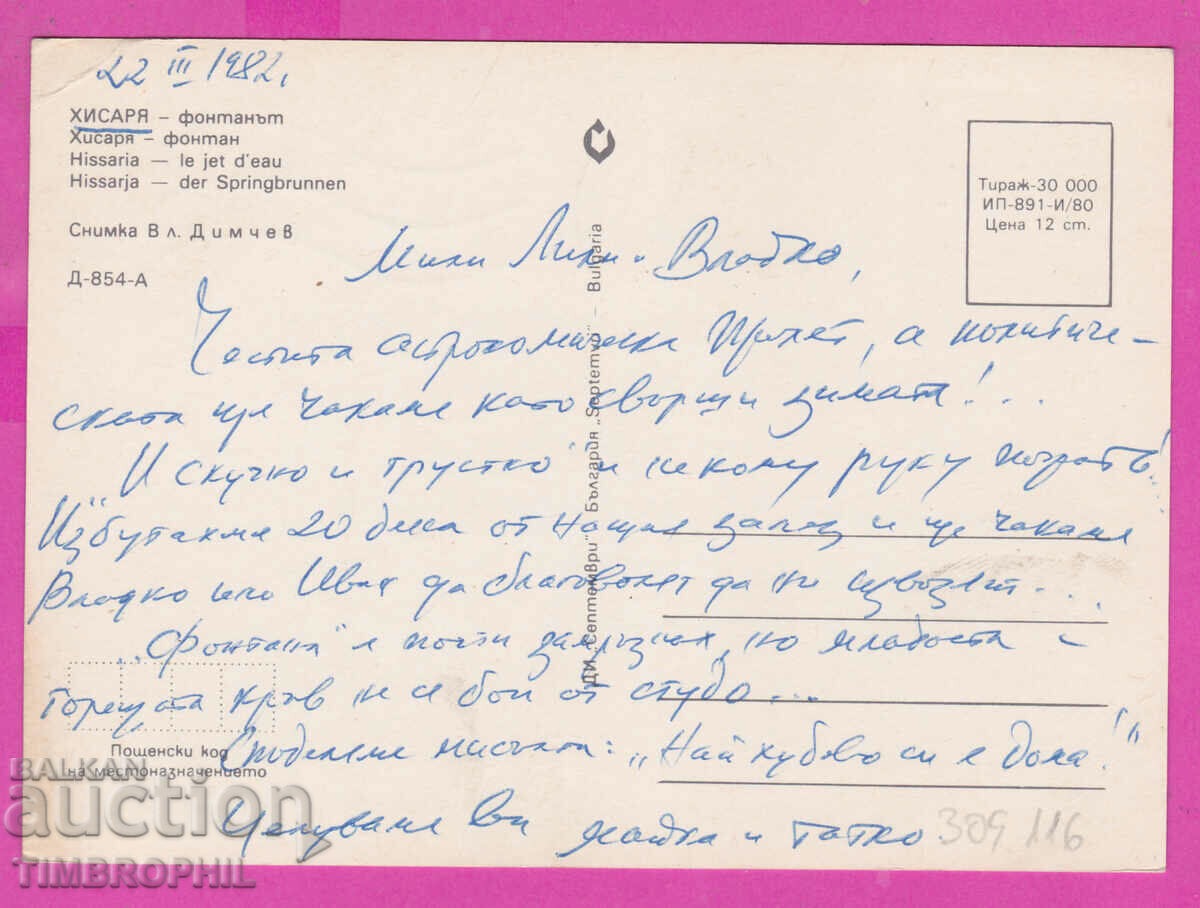 22 III 1982,
ХИСАРЯ – фонтанът
Хисаря – фонтан
Hissaria — le jet d'eau
Hissarja — der Springbrunnen
Снимка Вл. Димчев
Д-854-А
Тираж-30 000
ИП-891-И/80
Цена 12 ст.
ДИ „Септември" България „Septemvri" Bulgaria
Мили Лили и Владко,
Честита астрономическа Пролет, а политиче-
ската ще чакаме като свърши зимата!...
„И скучно и грустно" и некому руку подать!
Избутахме 20 дена от нашия и ще чакаме
Владко или Иван да благоволят да ни извозят...
„Фонтана" е почти замръзнал, но младостта и
горещата кръв не се бои от студа...
Споделяме мисълта: „Най хубаво си е дома!"
Целуваме ви майка и татко
Пощенски код
на местоназначението
309116
BALKAN
auction
TIMBROPHIL